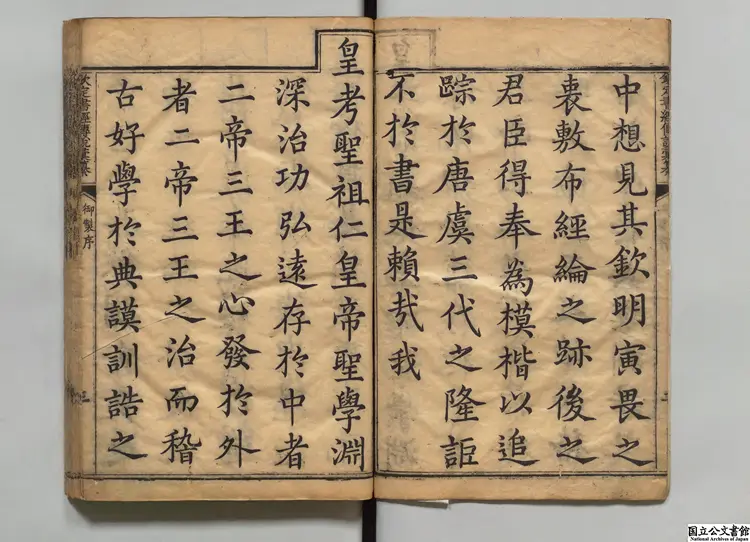 中想見其欽明寅畏之
衷敷布經綸之跡後之
君臣得奉為模楷以追
踪於唐虞三代之隆詎
不於書是賴哉我
皇考聖祖仁皇帝聖學淵
深治功弘遠存於中者
二帝三王之心發於外
者二帝三王之治而稽
古好學於典謨訓誥之
欽定書經傳說彙纂
御製序
三
国立公文書館
National Archives of Japan